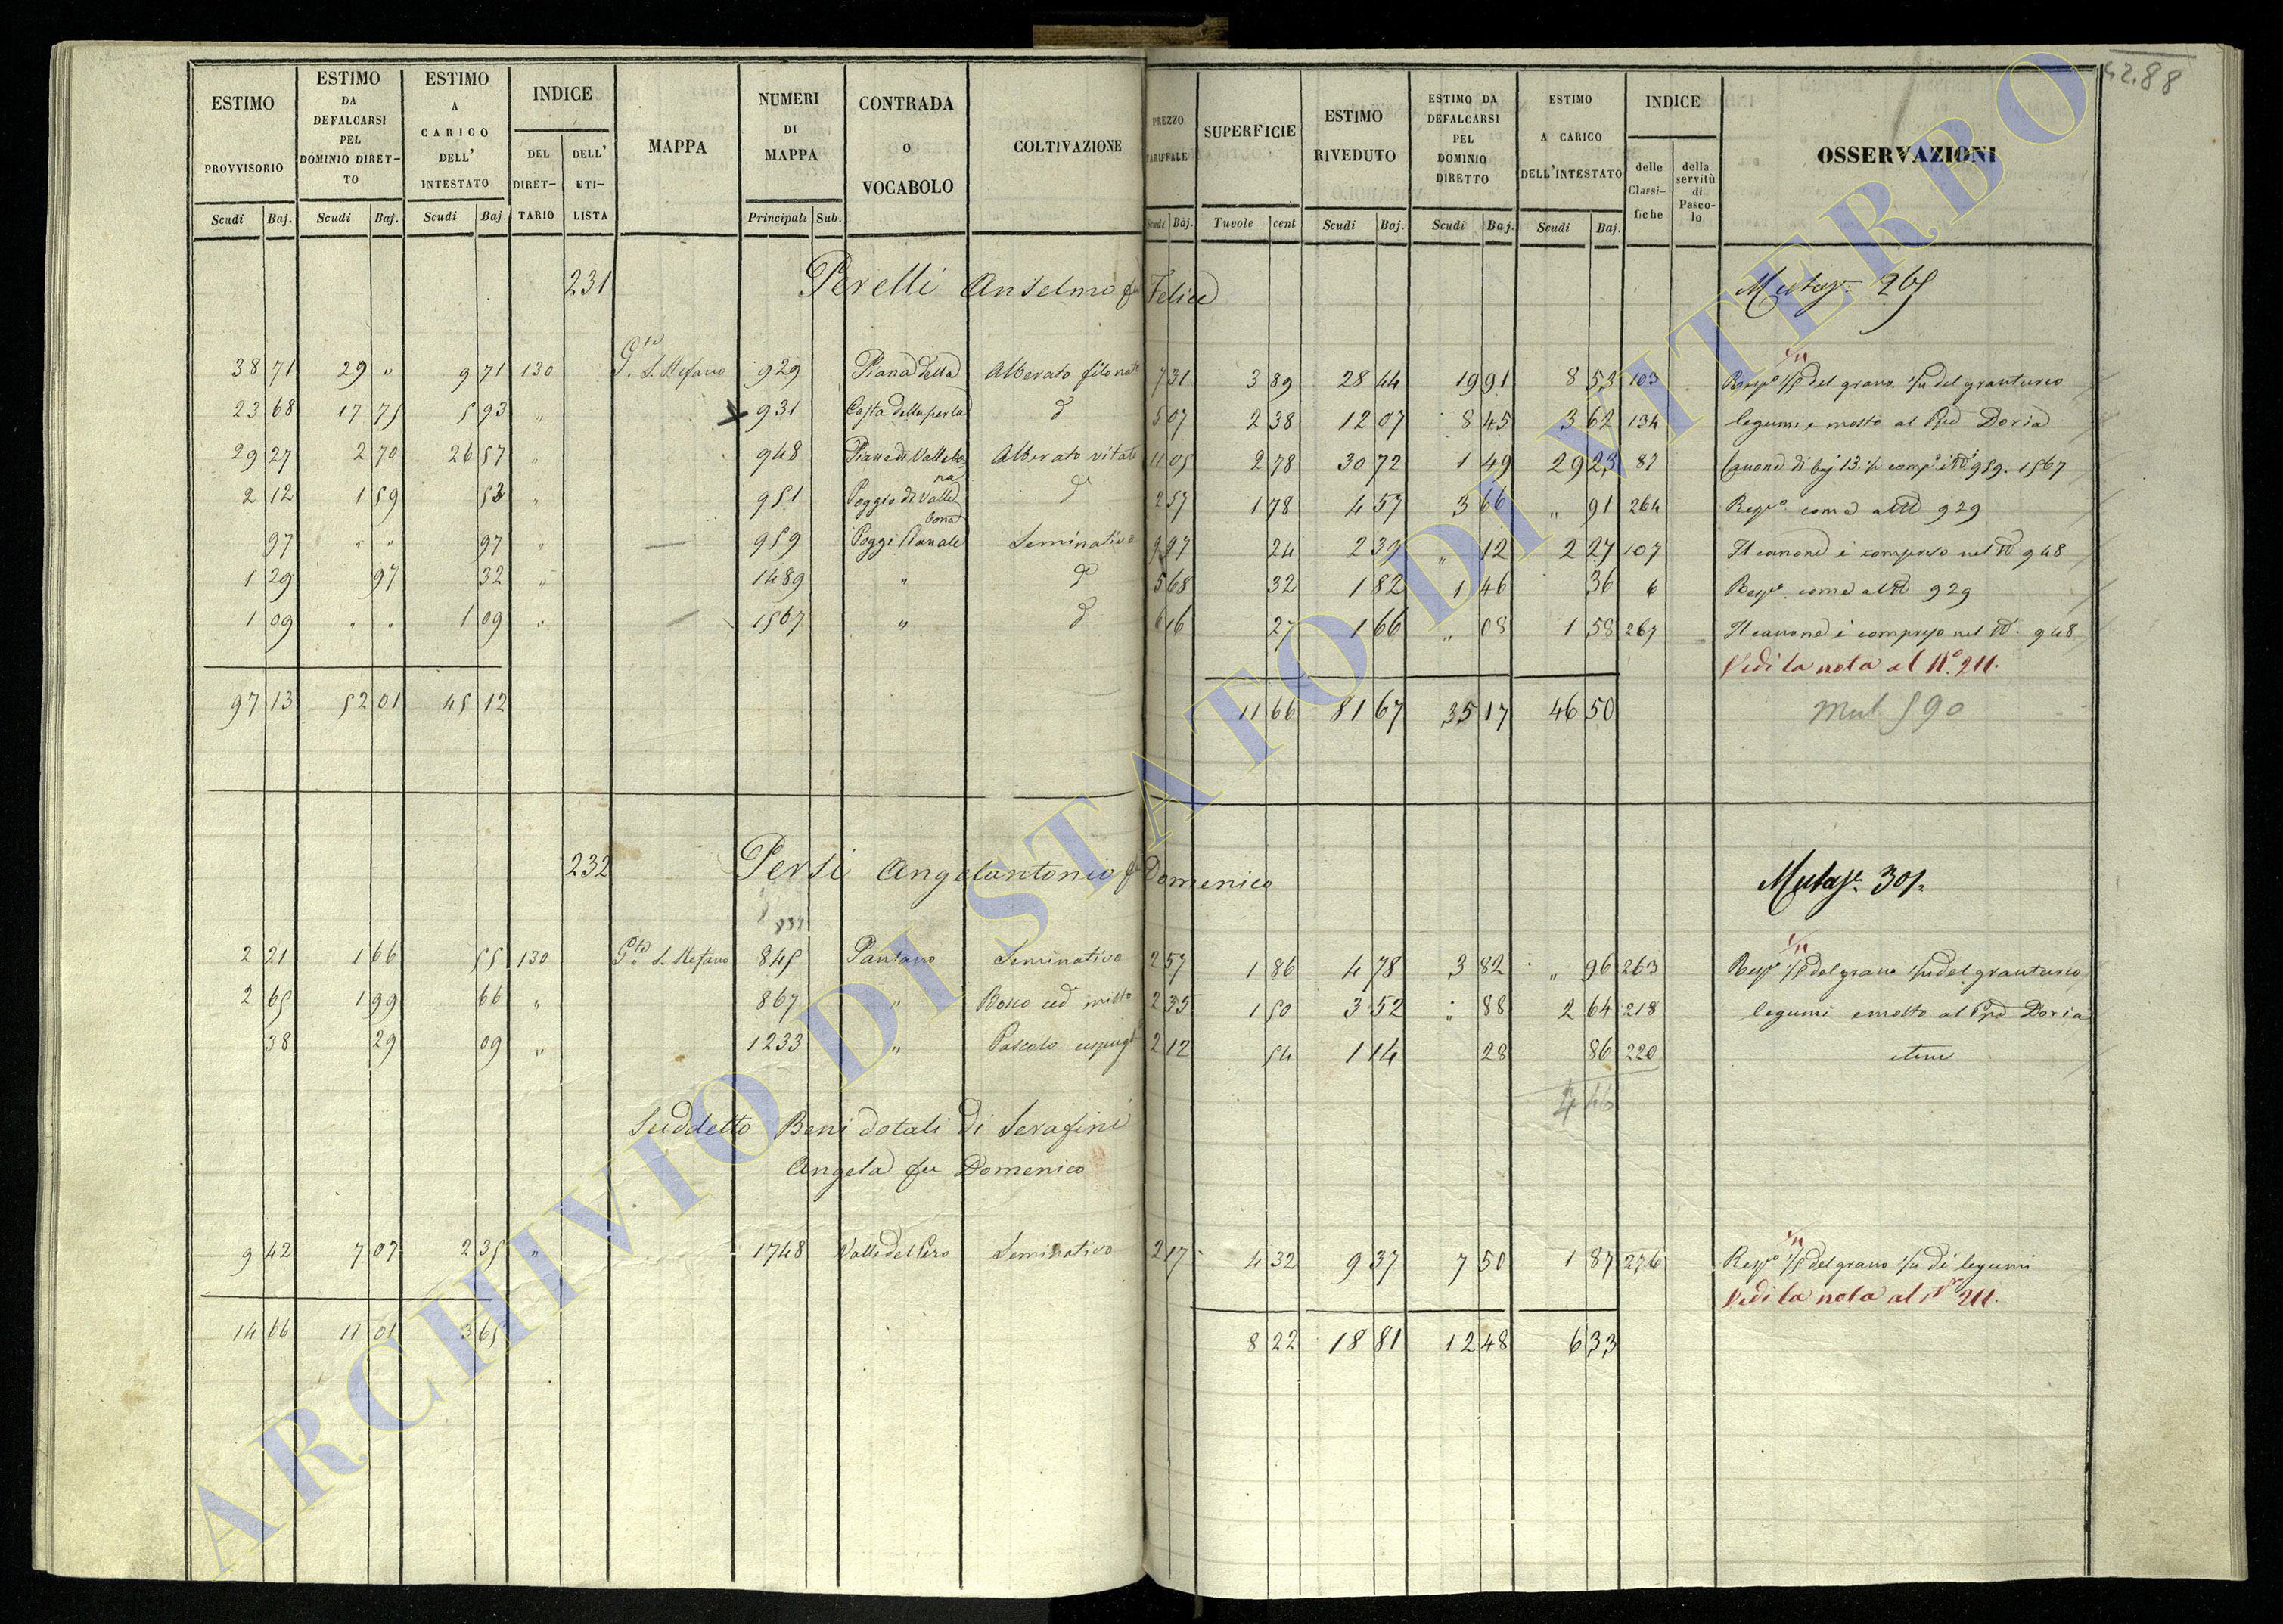 42.88
ESTIMO PROVVISORIO | ESTIMO DA DEFALCARSI PEL DOMINIO DIRETTO | ESTIMO A CARICO DELL' INTESTATO | INDICE DEL DIRETTARIO | DELL' UTILISTA | MAPPA | NUMERI DI MAPPA | CONTRADA o VOCABOLO | COLTIVAZIONE | PREZZO TARIFFALE | SUPERFICIE | ESTIMO RIVEDUTO | ESTIMO DA DEFALCARSI PEL DOMINIO DIRETTO | ESTIMO A CARICO DELL'INTESTATO | INDICE delle Classifiche | della servitù di Pascolo | OSSERVAZIONI
Scudi Baj. | Scudi Baj. | Scudi Baj. | Principali Sub. | Scudi Baj. | Tavole cent | Scudi Baj. | Scudi Baj. | Scudi Baj.
231 Perelli Anselmo fu Felice Mutaz. 265
38 71 | 29 " | 9 71 | 130 | S. Stefano | 929 | Piana della | Alberato filonato | 7 31 | 3 89 | 28 44 | 19 91 | 8 53 | 103 | Rispo 1/5 del grano 1/4 del granturco
23 68 | 17 75 | 5 93 | " | 931 | Costa della perla | d | 5 07 | 2 38 | 12 07 | 8 45 | 3 62 | 134 | legumi e mosto al Ppe Doria
29 27 | 2 70 | 26 57 | " | 948 | Piane di Vallebona | Alberato vitato | 11 05 | 2 78 | 30 72 | 1 49 | 29 23 | 87 | Canone di baj 13. 959. 1567
2 12 | 1 59 | 53 | " | 951 | Poggio di Valle bona | d | 2 57 | 1 78 | 4 57 | 3 66 | " 91 | 264 | Rispo come al N 929
97 | " " | 97 | " | 959 | Poggi Canale | Seminativo | 9 97 | 24 | 2 39 | " 12 | 2 27 | 107 | Il canone è compreso nel N 948
1 29 | 97 | 32 | " | 1489 | " | d | 5 68 | 32 | 1 82 | 1 46 | 36 | 6 | Rispo. come al N 929
1 09 | " " | 1 09 | " | 1567 | " | d | 6 16 | 27 | 1 66 | " 08 | 1 58 | 267 | Il canone è compreso nel N. 948
Vedi la nota al N. 211.
97 13 | 52 01 | 45 12 | 11 66 | 81 67 | 35 17 | 46 50 | Mut 590
232 Persi Angelantonio fu Domenico Mutaz. 301
831
2 21 | 1 66 | 55 | 130 | S. Stefano | 845 | Pantano | Seminativo | 2 57 | 1 86 | 4 78 | 3 82 | " 96 | 263 | Rispo 1/5 del grano 1/4 del granturco
2 65 | 1 99 | 66 | " | 867 | " | Bosco ced misto | 2 35 | 1 50 | 3 52 | " 88 | 2 64 | 218 | legumi e mosto al Ppe Doria
38 | 29 | 09 | " | 1233 | " | Pascolo cespugl | 2 12 | 54 | 1 14 | 28 | 86 | 220
4 46
Suddetto Beni dotali di Serafini
Angela fu Domenico
9 42 | 7 07 | 2 35 | " | 1748 | Valle del Pero | Seminativo | 2 17 | 4 32 | 9 37 | 7 50 | 1 87 | 276 | Rispo 1/5 del grano 1/4 di legumi
Vedi la nota al N 211.
14 66 | 11 01 | 3 65 | 8 22 | 18 81 | 12 48 | 6 33
ARCHIVIO DI STATO DI VITERBO